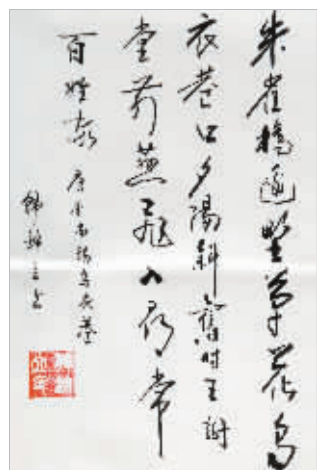 朱雀橋邊野草花烏
衣巷口夕陽斜舊时王謝
堂前燕飛入尋常
百姓家 唐刘禹錫烏衣巷